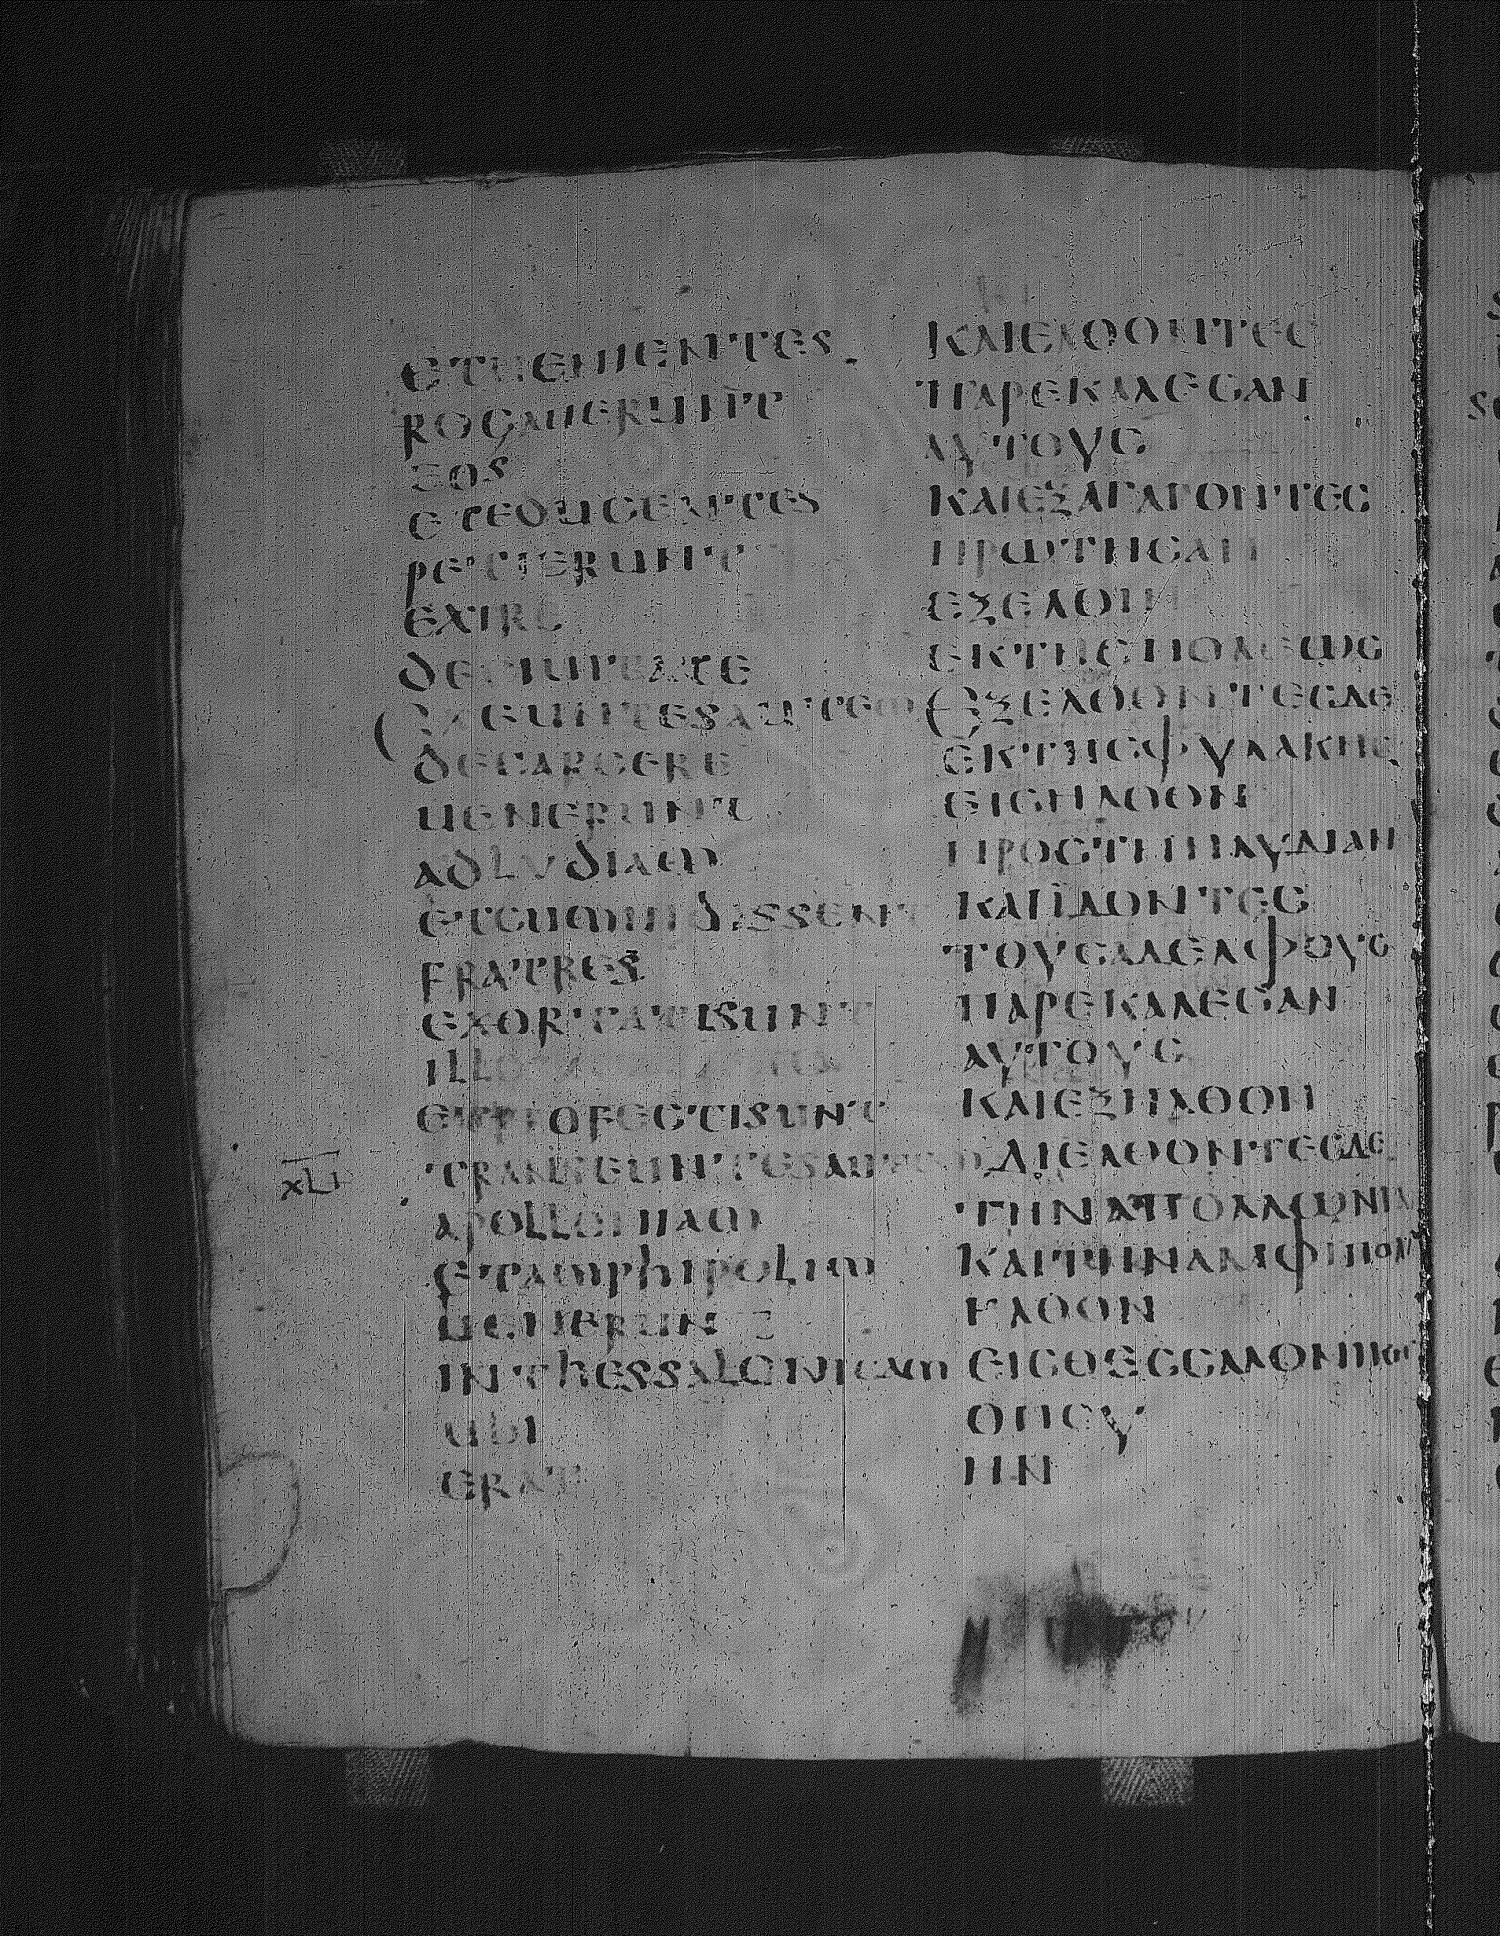 ETUENIENTES
ROGAUERUNT
EOS
ETEDUCENTES
PETIERUNT
EXIRE
DECIUITATE
EXEUNTESAUTEM
DECARCERE
UENERUNT
ADLYDIAM
ETCUMUIDISSENT
FRATRES
EXORTATISUNT
ETPROFECTISUNT
XLI
TRANSEUNTESAUTEM
APOLLONIAM
ETAMPHIPOLIM
UENERUNT
INTHESSALONICAM
UBI
ERAT
ΚΑΙΕΛΘΟΝΤΕϹ
ΠΑΡΕΚΑΛΕϹΑΝ
ΑΥΤΟΥϹ
ΚΑΙΕΞΑΓΑΓΟΝΤΕϹ
ΗΡΩΤΗϹΑΝ
ΕΞΕΛΘΙΝ
ΕΚΤΗϹΠΟΛΕΩϹ
ΕΞΕΛΘΟΝΤΕϹΔΕ
ΕΚΤΗϹΦΥΛΑΚΗϹ
ΕΙϹΗΛΘΟΝ
ΠΡΟϹΤΗΝΛΥΔΙΑΝ
ΚΑΙΪΔΟΝΤΕϹ
ΤΟΥϹΑΔΕΛΦΟΥϹ
ΠΑΡΕΚΑΛΕϹΑΝ
ΑΥΤΟΥϹ
ΚΑΙΕΞΗΛΘΟΝ
ΔΙΕΛΘΟΝΤΕϹΔΕ
ΤΗΝΑΠΟΛΛΩΝΙΑ
ΚΑΙΤΗΝΑΜΦΙΠΟΛΙ
ΗΛΘΟΝ
ΕΙϹΘΕϹϹΑΛΟΝΙΚΗ
ΟΠΟΥ
ΗΝ